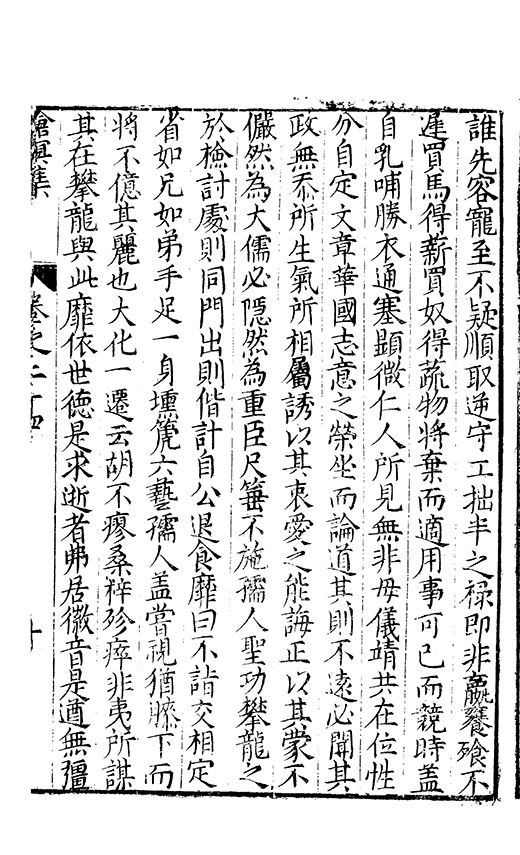 誰先容寵至不疑順取逆守工拙半之祿即非羸饔飱不
遑買馬得薪買奴得疏物將棄而適用事可已而競時蓋
自乳哺勝衣通塞顯微仁人所見無非母儀靖共在位性
分自定文章華國志意之榮坐而論道其則不遠必聞其
政無忝所生氣所相屬誘以其衷愛之能誨正以其蒙不
儼然為大儒必隱然為重臣尺箠不施孺人聖功攀龍之
於檢討處則同門出則偕計自公退食靡曰不詣交相定
省如兄如弟手足一身壎箎六藝孺人盖嘗視猶膝下而
將不億其麗也大化一遷云胡不瘳桑梓殄瘁非夷所謀
其在攀龍與此靡依世徳是求逝者弗居徽音是遒無彊
滄溟集 卷之二十四 十